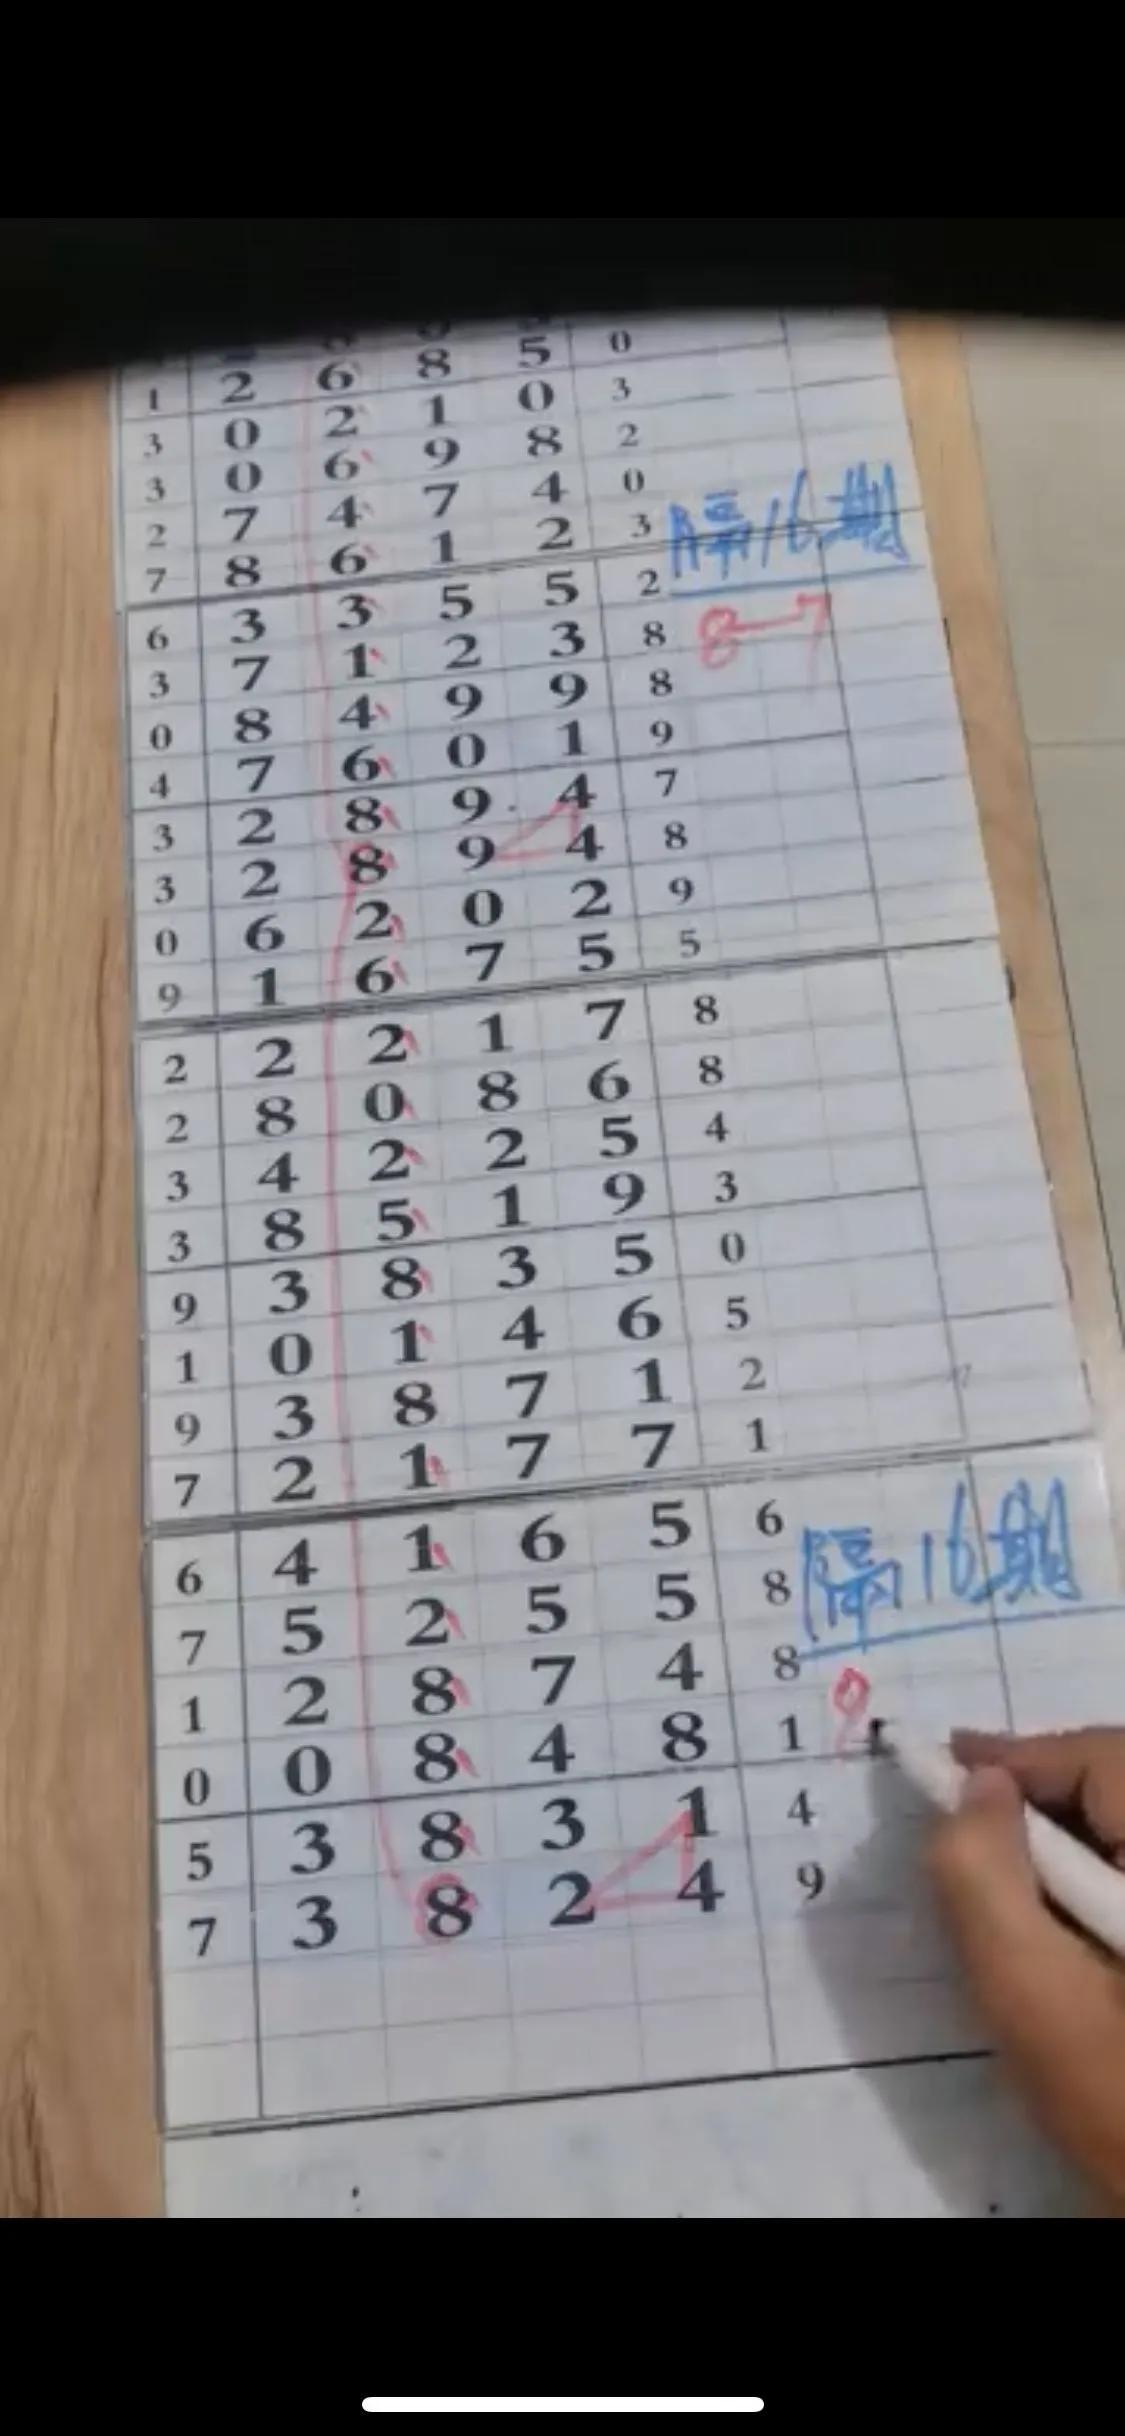 1 2 6 8 5 0
3 0 2 1 0 3
3 0 6 9 8 2
2 7 4 7 4 0
7 8 6 1 2 3 隔16期
6 3 3 5 5 2
3 7 1 2 3 8 8-7
0 8 4 9 9 8
4 7 6 0 1 9
3 2 8 9 4 7
3 2 8 9 4 8
0 6 2 0 2 9
9 1 6 7 5 5
2 2 2 1 7 8
2 8 0 8 6 8
3 4 2 2 5 4
3 8 5 1 9 3
9 3 8 3 5 0
1 0 1 4 6 5
9 3 8 7 1 2
7 2 1 7 7 1
6 4 1 6 5 6
7 5 2 5 5 8 隔16期
1 2 8 7 4 8
0 0 8 4 8 1 8
5 3 8 3 1 4
7 3 8 2 4 9